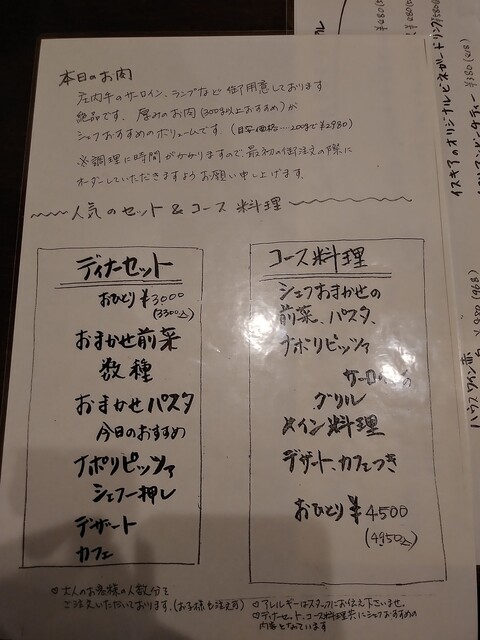 本日のお肉
庄内牛のサーロイン、ランプなど 御用意しております
絶品です。厚みのお肉(300g以上おすすめ)が
シェフおすすめのボリュームです。(目安価格…200gまで¥2980)
※調理に時間がかかりますので最初の御注文の際に
オーダーしていただきますようお願い申し上げます。
人気のセット & コース 料理
ディナーセット
おひとり ¥3000
(3300込)
おまかせ前菜
数種
おまかせパスタ
今日のおすすめ
ナポリピッツァ
シェフ一押し
デザート
カフェ
コース料理
シェフおまかせの
前菜、パスタ、
ナポリピッツァ
サーロインの
グリル
メイン料理
デザート、カフェつき
おひとり ¥4500
(4950込)
♡大人のお客様の人数分を
ご注文いただいております。(お子様も注文可)
♡アレルギーはスタッフにお伝え下さいませ。
♡ディナーセット、コース料理共にシェフおすすめの
内容となっています
イスキアのオリジナルビネガードリンク
¥380(418)
ハウスワイン 赤